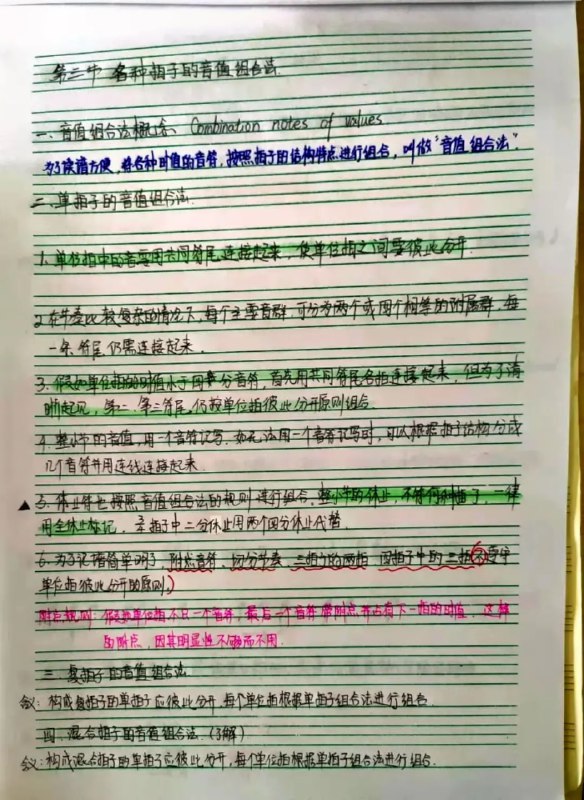 第三节 各种拍子的音值组合法.
一. 音值组合法概念: Combination notes of values
为了读谱方便,将各种时值的音符,按照拍子的结构特点进行组合,叫做“音值组合法”.
二. 单拍子的音值组合法.
1. 单位拍中的音要用共同符尾连接起来,使单位拍之间要彼此分开.
2. 在节奏比较复杂的情况下,每个主要音群,可分为两个或四个相等的附属群,每
一条符尾仍需连接起来.
3. 假如单位拍的时值小于四分音符,首先用共同符尾各拍连接起来,但为了清
晰起见,第二、第三符尾,仍按单位拍彼此分开原则组合.
4. 整小节的音值,用一个音符记写.如无法用一个音符记写时,可以根据拍子结构分成
几个音符并用连线连接起来.
▲ 5. 休止符也按照音值组合法的规则进行组合.整小节的休止,不管何种拍子,一律
用全休止标记. 拍子中二分休止用两个四分休止代替.
6. 为了记谱简单明了,附点音符、切分节奏、三拍子的两拍、四拍子中的三拍(不遵守
单位拍彼此分开的原则.)
附点规则:假如单位拍不只一个音符,最后一个音符带附点并占有下一拍的时值.这样
的附点,因其明显性不够而不用.
三. 复拍子的音值组合法.
含义: 构成复拍子的单拍子应彼此分开,每个单位拍根据单拍子组合法进行组合.
四. 混合拍子的音值组合法.(了解)
含义: 构成混合拍子的单拍子应彼此分开,每个单位拍根据单拍子组合法进行组合.